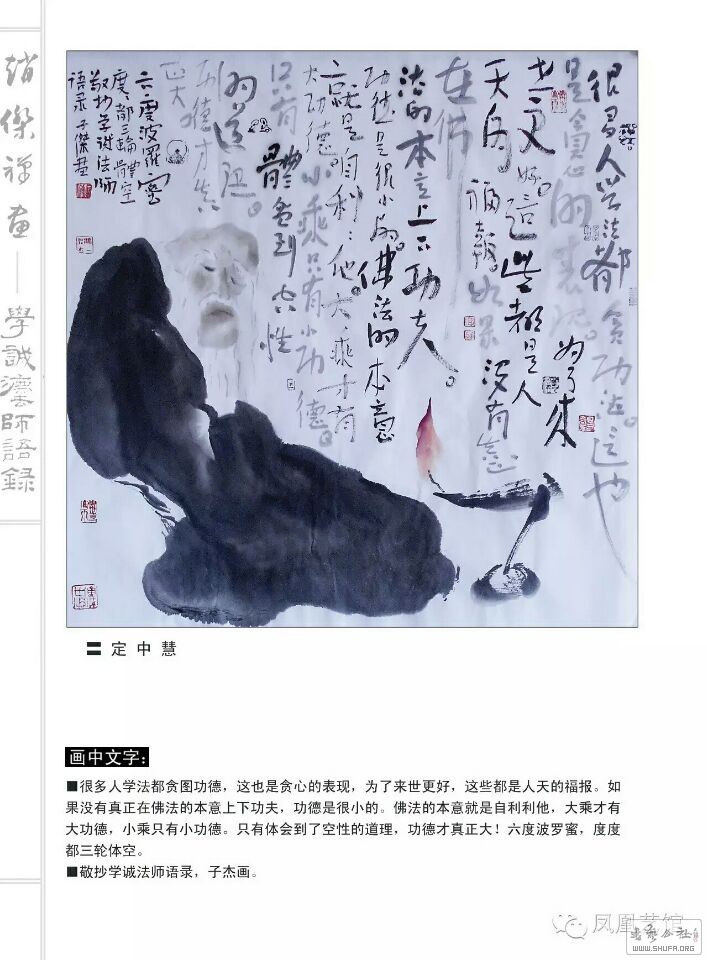 趙傑禅画——學誠灋師語録
很多人学法都贪功法。這也
是贪心的表现。为了来
世更好。這些都是人
天的福報。如果没有意
在佛
法的本意上下功夫。
功德是很小的。佛法的本意
就是自利利他大乘才有
大功德小乘只有小功德。
只有體会到空性
的道理。
功德才真
正大
六度波羅蜜
度度三輪體空
敬抄学诚法师
语录 子傑畫
〓 定中慧
画中文字：
■很多人学法都贪图功德，这也是贪心的表现，为了来世更好，这些都是人天的福报。如
果没有真正在佛法的本意上下功夫，功德是很小的。佛法的本意就是自利利他，大乘才有
大功德，小乘只有小功德。只有体会到了空性的道理，功德才真正大！六度波罗蜜，度度
都三轮体空。
■敬抄学诚法师语录，子杰画。
凤凰艺馆
书艺公社
WWW.SHUFA.ORG